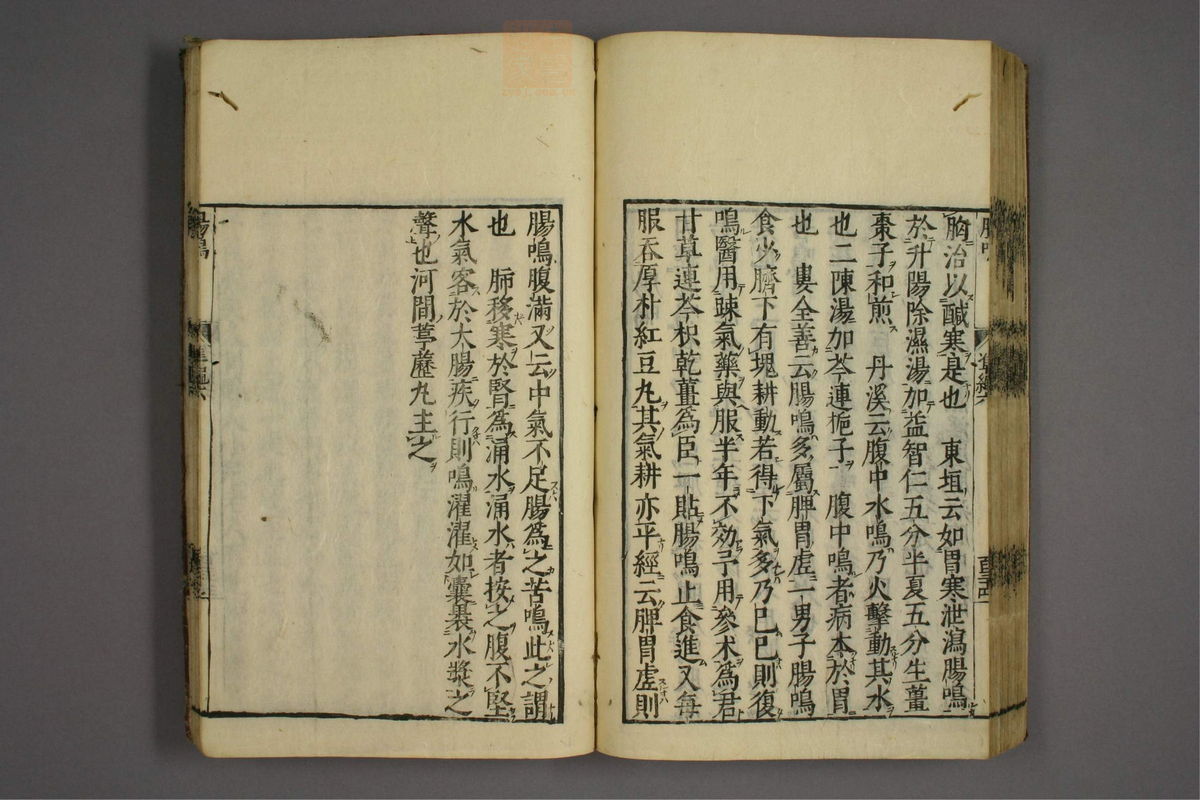 胸治以鹹寒是也　東垣云如胃寒泄瀉腸鳴
於升陽除濕湯加益智仁五分半夏五分生薑
棗子和煎　丹溪云腹中水鳴乃火擊動其水
也二陳湯加芩連梔子　腹中鳴者病本於胃
也　婁全善云腸鳴多屬脾胃虛一男子腸鳴
食少臍下有塊耕動若得下氣多乃已已則復
鳴醫用疎氣藥與服半年不効予用參术爲君
甘草連芩枳乾薑爲臣一貼腸鳴止食進又每
服吞厚朴紅豆丸其氣耕亦平經云脾胃虛則
腸鳴腹滿又云中氣不足腸爲之苦鳴此之謂
也　肺移寒於腎爲涌水涌水者按之腹不堅
水氣客於大腸疾行則鳴濯濯如囊裹水漿之
聲也河間葶藶丸主之
腸鳴